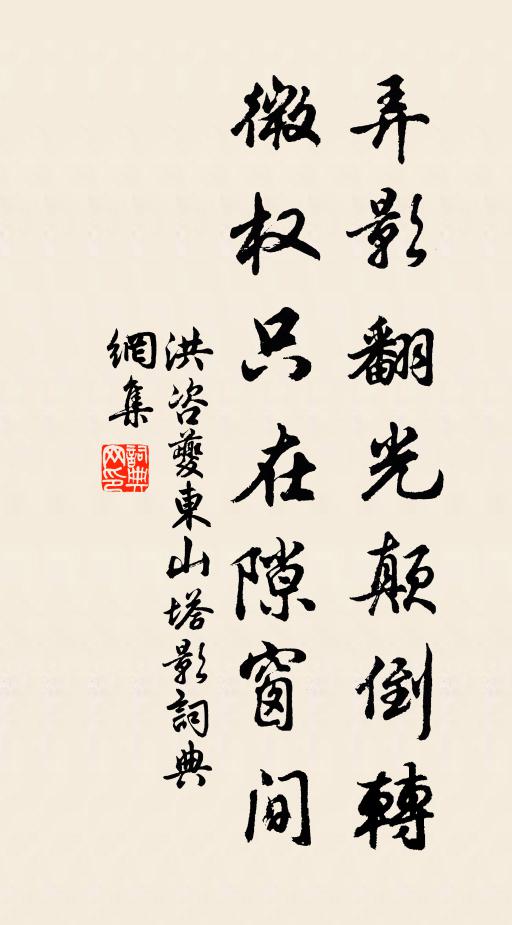 弄影翻光颠倒轉
微权只在隙窗间
洪咨夔東山塔影詞典
網集
詞典网印